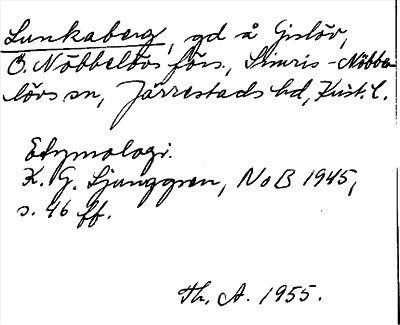 Lunkaberg, gd å Gislöv,
Ö. Nöbbelövs förs., Simris-Nöbbe-
lövs sn, Järrestads hd, Krist. l.
Etymologi.
K. G. Ljunggren, NoB 1945,
s. 46 ff.
Th. A. 1955.